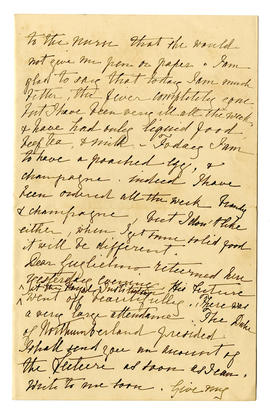 to the nurse that she would
not give me pen or paper. I am
glad to say that today I am much
better, the fever completely gone
but I have been very ill all the week
& have had only liquid food
beef tea & milk. Today I am
to have a poached egg, &
champagne. Indeed I have
been ordered all the week brandy
& champagne, but I don't like
either, when I get some solid food
it will be different.
Dear Guglielmo returned here
yesterday evening. His lecture
at the Royal Institution
went off beautifully. There was
a very large attendance. The Duke
of Northumberland presided.
I shall send you an account of
the lecture as soon as I can.
Write to me soon. Give my